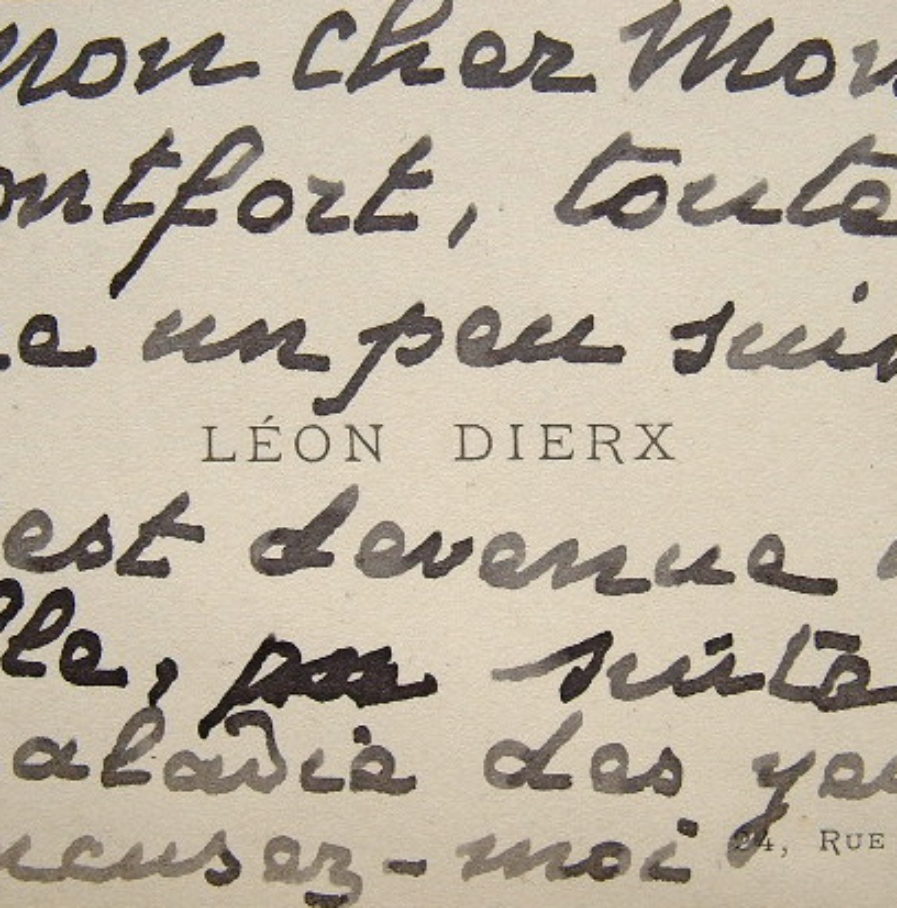 mon cher Mon
ontfort, toute
e un peu suiv
LÉON DIERX
est devenue
lle, suite
aladie des yeu
xcusez-moi
24, RUE